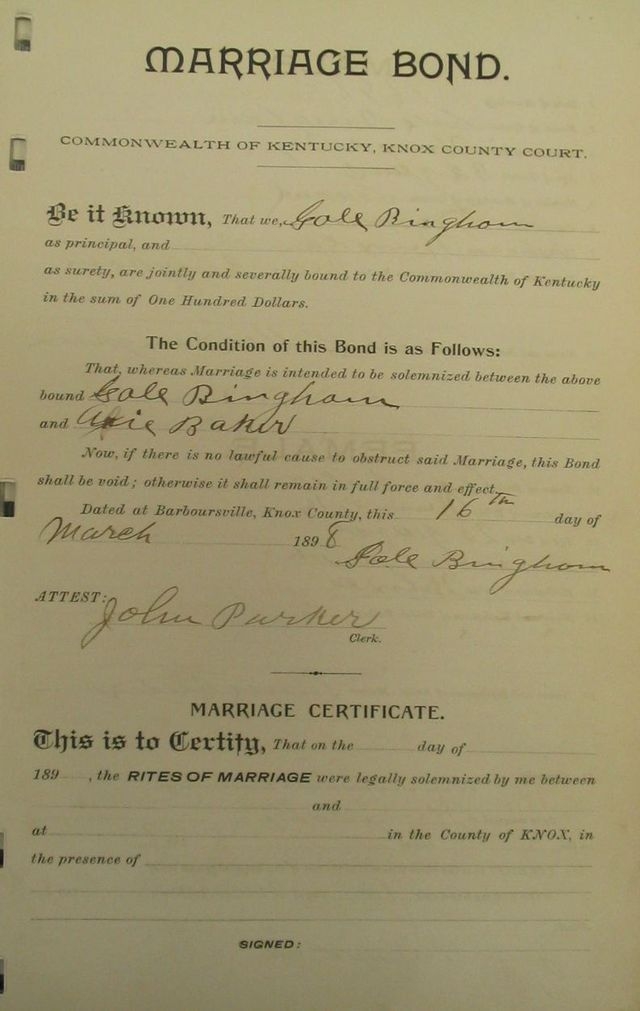 MARRIAGE BOND.
COMMONWEALTH OF KENTUCKY, KNOX COUNTY COURT.
Be it Known, That we, Gale Bingham
as principal, and
as surety, are jointly and severally bound to the Commonwealth of Kentucky
in the sum of One Hundred Dollars.
The Condition of this Bond is as Follows:
That, whereas Marriage is intended to be solemnized between the above
bound Gale Bingham
and Baker
Now, if there is no lawful cause to obstruct said Marriage, this Bond
shall be void; otherwise it shall remain in full force and effect.
Dated at Barboursville, Knox County, this 16th day of
March 1898
Gale Bingham
ATTEST: John Parker
Clerk.
MARRIAGE CERTIFICATE.
This is to Certify, That on the day of
189 , the RITES OF MARRIAGE were legally solemnized by me between
and
at in the County of KNOX, in
the presence of
SIGNED: